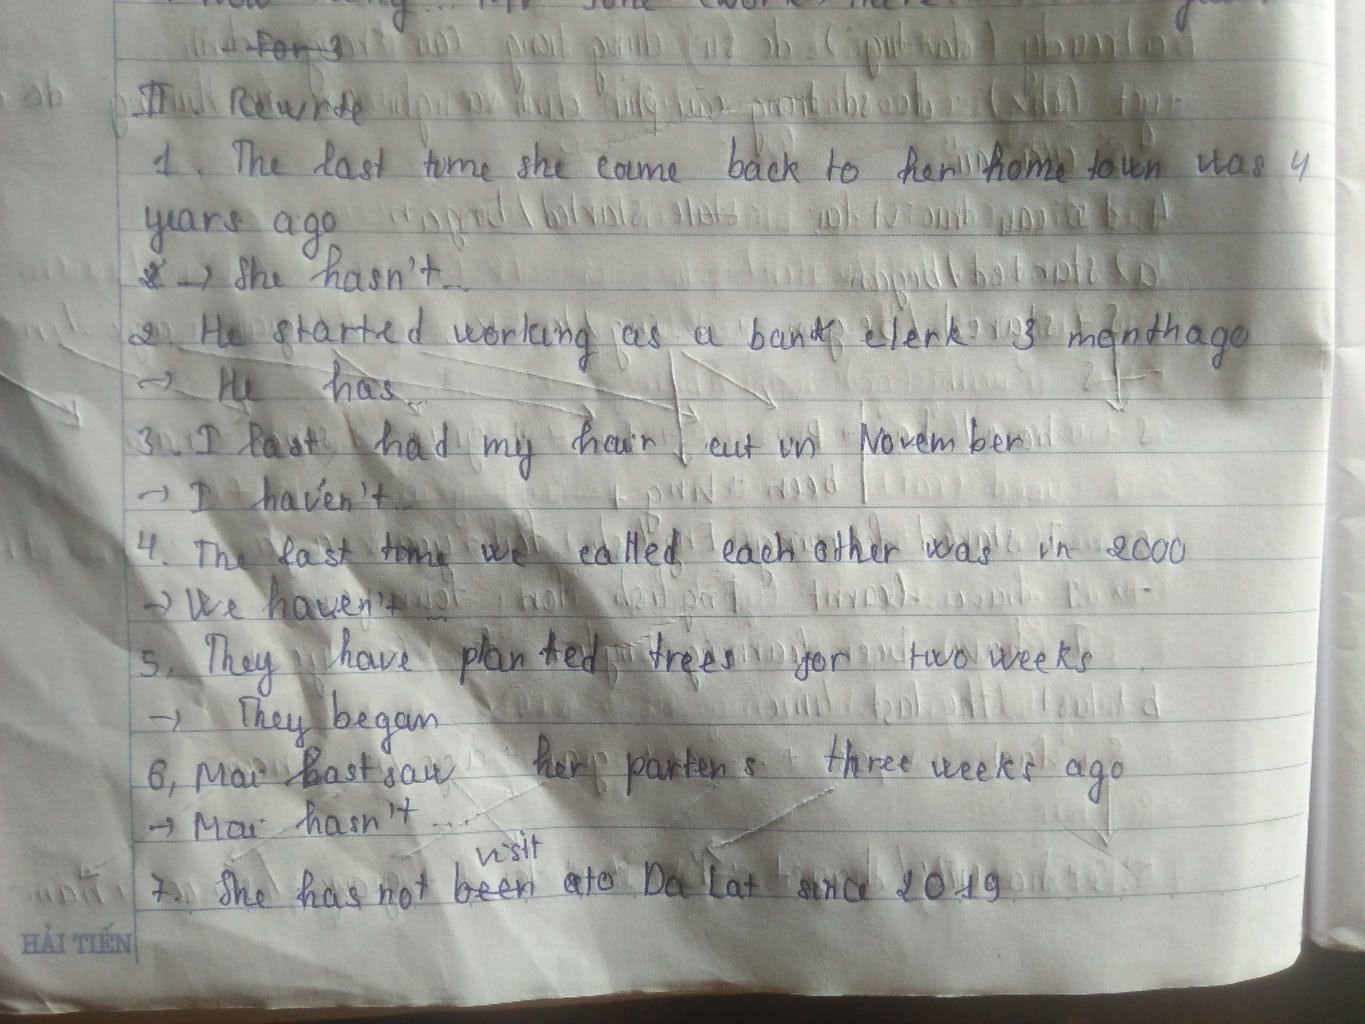 For 3
II. Rewrite
1. The last time she came back to her home town was 4
years ago
2 → She hasn't...
2. He started working as a bank clerk 3 month ago
→ He has...
3. I last had my hair cut in November
→ I haven't...
4. The last time we called each other was in 2000
→ We haven't...
5, They have planted trees for two weeks
→ They began
6, Mai last saw her partens three weeks ago
→ Mai hasn't...
visit
7. She has not been to Da Lat since 2019
HẢI TIẾN